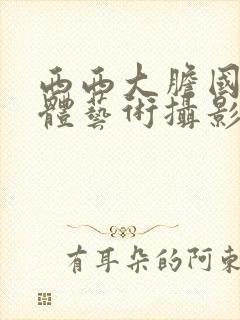 西西大膽國
體藝術攝影
有耳朵的阿東